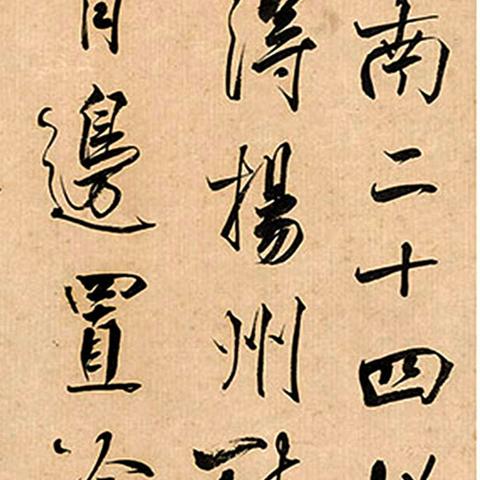 南二十四
得揚州
邊置